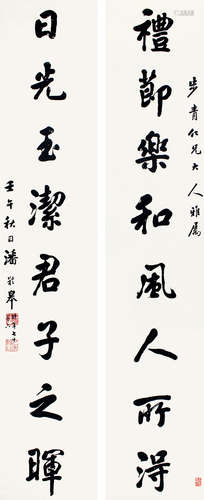 步青仁兄大人雅属
禮節樂和風人所得
日光玉潔君子之暉
壬午秋日潘齡皋